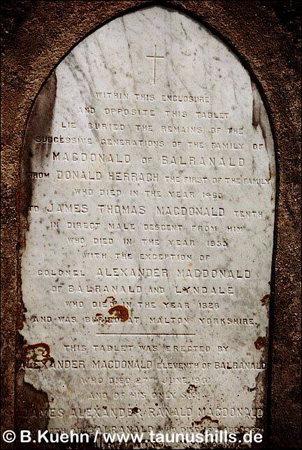 WITHIN THIS ENCLOSURE
AND OPPOSITE THIS TABLET
LIE BURIED THE REMAINS OF THE
SUCCESSIVE GENERATIONS OF THE FAMILY OF
MACDONALD OF BALRANALD
FROM DONALD HERRACH THE FIRST OF THE FAMILY
WHO DIED IN THE YEAR
TO JAMES THOMAS MACDONALD TENTH
IN DIRECT MALE DESCENT FROM HIM
WHO DIED IN THE YEAR 1855
WITH THE EXCEPTION OF
COLONEL ALEXANDER MACDONALD
OF BALRANALD AND LYNDALE
WHO DIED IN THE YEAR 1826
AND WAS BURIED AT MALTON YORKSHIRE.
THIS TABLET WAS ERECTED BY
ALEXANDER MACDONALD ELEVENTH OF BALRANALD
WHO DIED 27TH JUNE 1901
AND OF HIS ONLY SON
JAMES ALEXANDER RANALD MACDONALD
BALRANALD
© B.Kuehn / www.taunushills.de